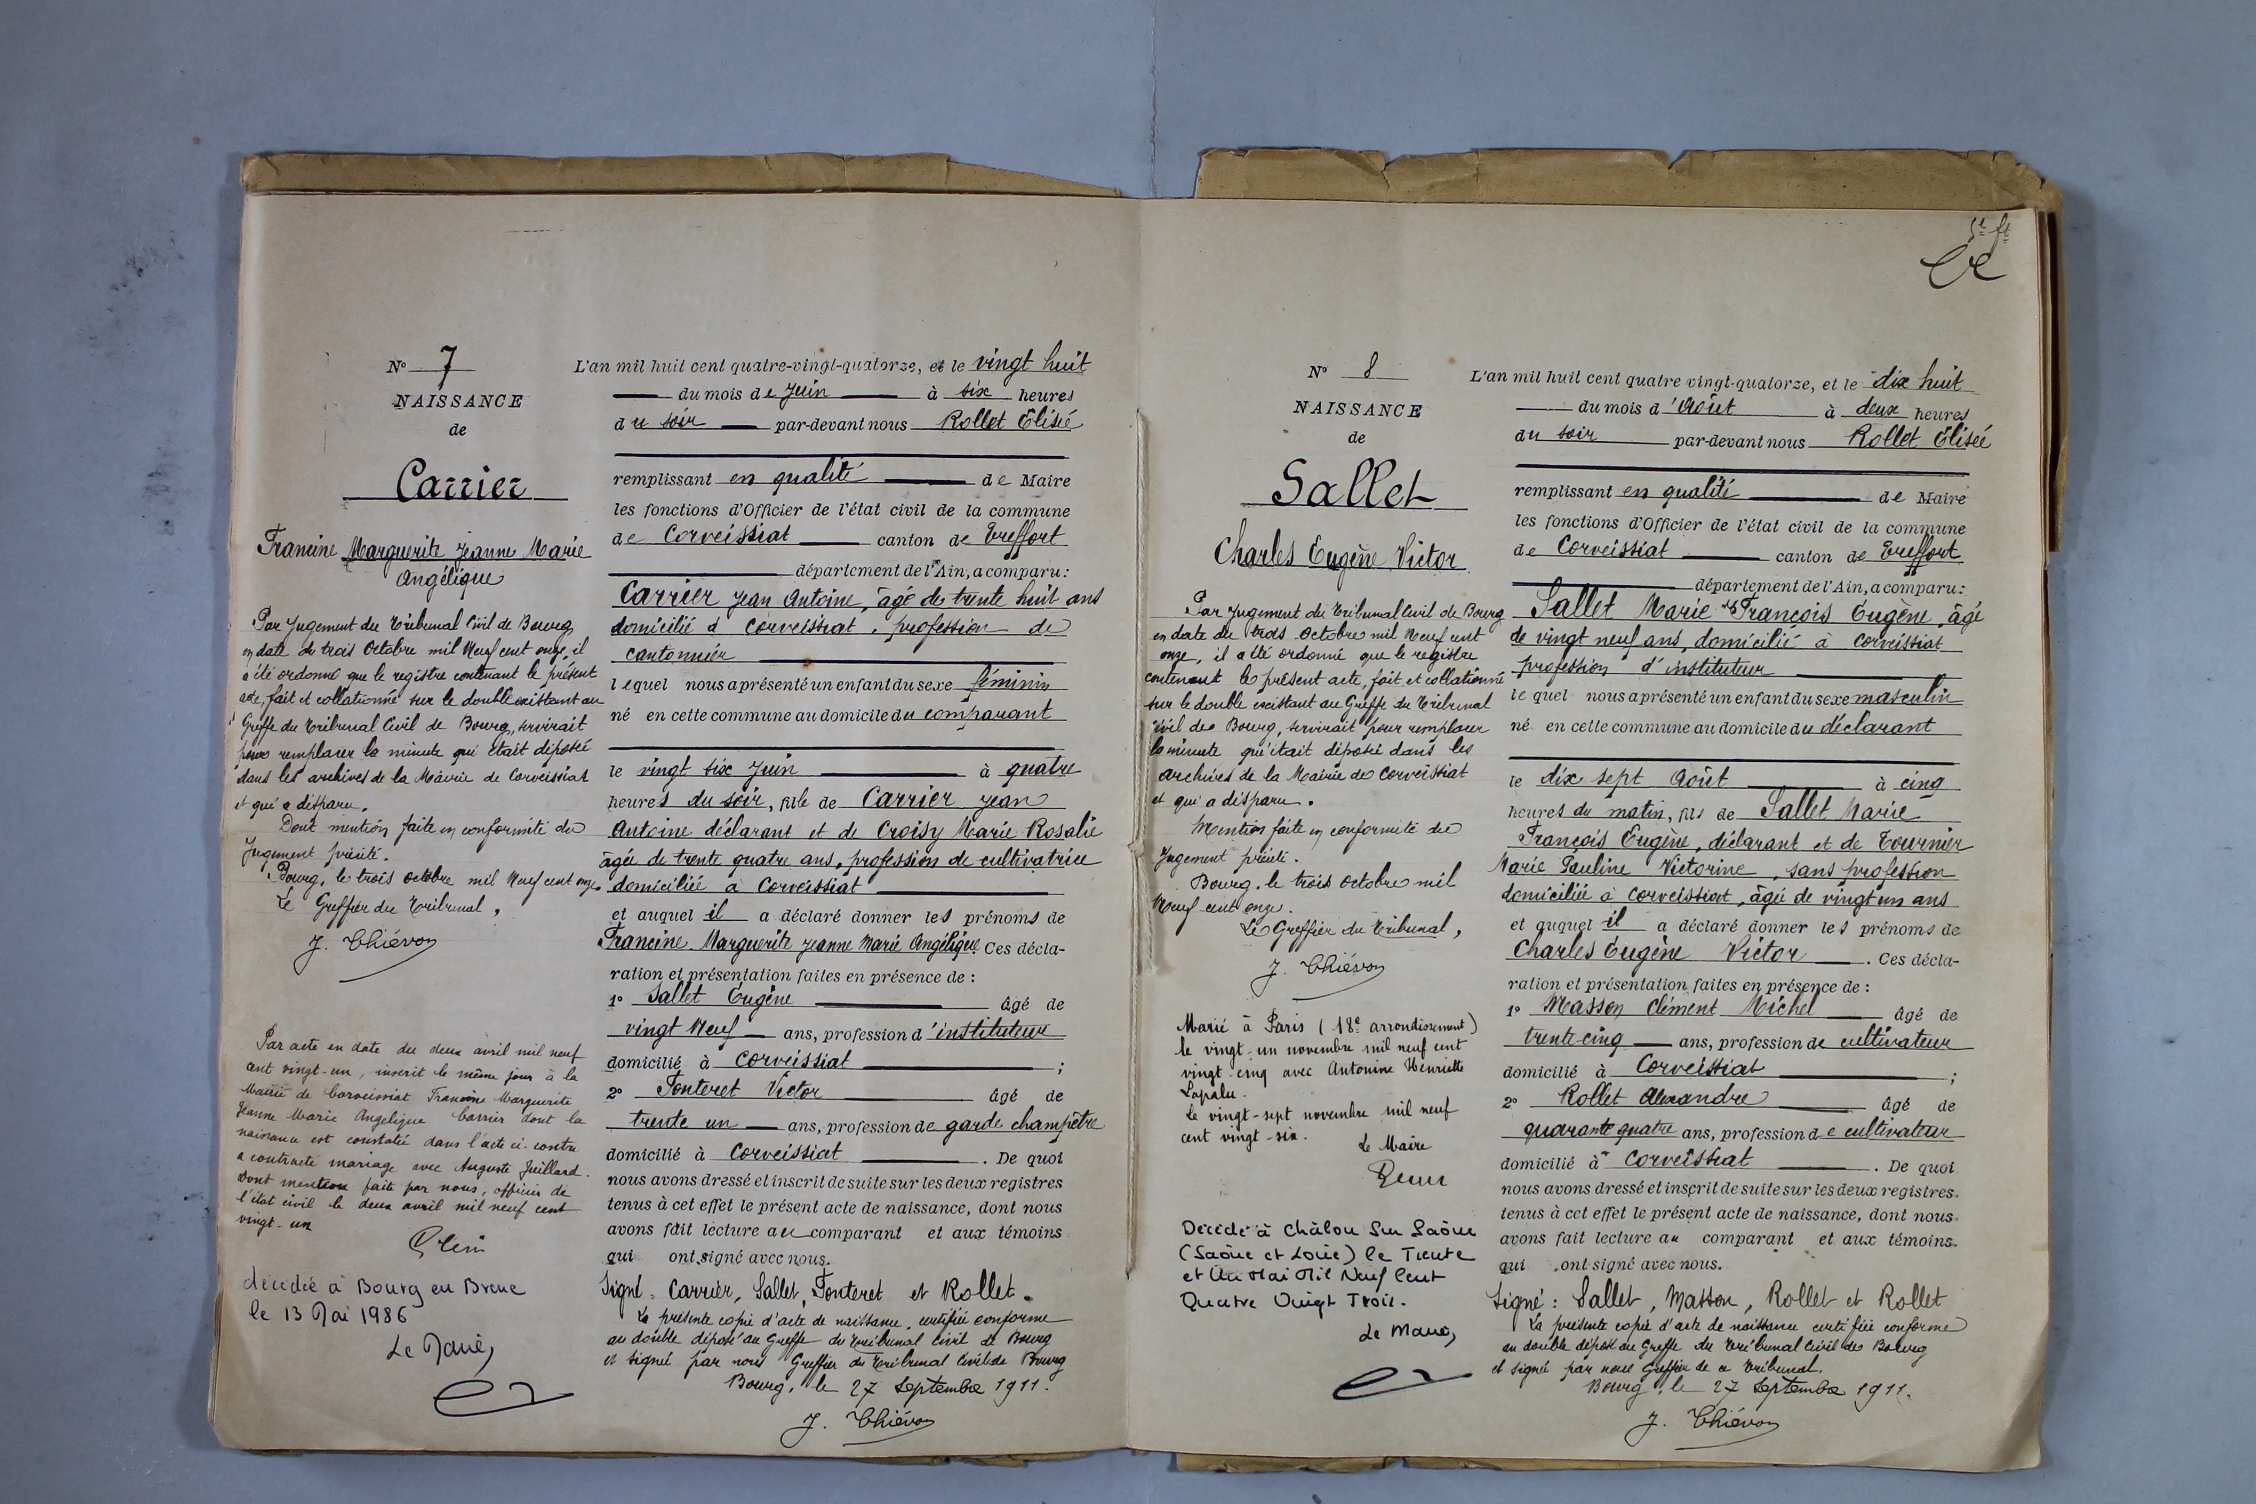 N° 7
NAISSANCE
de
Carrier
Francine Marguerite Jeanne Marie
Angélique
Par Jugement du Tribunal Civil de Bourg
en date du trois Octobre mil Neuf cent onze, il
a été ordonné que le registre contenant le présent
acte, fait et collationné sur le double existant au
Greffe du Tribunal Civil de Bourg, servirait
pour remplacer la minute qui était déposée
dans les archives de la Mairie de Corveissiat
et qui a disparu.
Dont mention faite en conformité du
Jugement précité.
Bourg, le trois octobre mil Neuf cent onze
Le Greffier du Tribunal,
J. Thiévon
Par acte en date du deux avril mil neuf
cent vingt-un, inscrit le même jour à la
Mairie de Corveissiat Francine Marguerite
Jeanne Marie Angelique Carrier dont la
naissance est constatée dans l'acte ci-contre
a contracté mariage avec Auguste Juillard.
Dont mention faite par nous, officier de
l'état civil le deux avril mil neuf cent
vingt-un
décédée à Bourg en Bresse
le 13 Mai 1986
Le Maire,
L'an mil huit cent quatre-vingt-quatorze, et le vingt huit
du mois de Juin à six heures
du soir par-devant nous Rollet Élisée
remplissant en qualité de Maire
les fonctions d'Officier de l'état civil de la commune
de Corveissiat canton de Treffort
département de l'Ain, a comparu:
Carrier Jean Antoine, âgé de trente huit ans
domicilié à Corveissiat, profession de
cantonnier
lequel nous a présenté un enfant du sexe féminin
né en cette commune au domicile du comparant
le vingt six Juin à quatre
heures du soir, fille de Carrier Jean
Antoine déclarant et de Croisy Marie Rosalie
âgée de trente quatre ans, profession de cultivatrice
domiciliée à Corveissiat
et auquel il a déclaré donner les prénoms de
Francine Marguerite Jeanne Marie Angélique. Ces décla-
ration et présentation faites en présence de :
1° Sallet Eugène âgé de
vingt Neuf ans, profession d'instituteur
domicilié à Corveissiat ;
2° Fonteret Victor âgé de
trente un ans, profession de garde champêtre
domicilié à Corveissiat . De quoi
nous avons dressé et inscrit de suite sur les deux registres
tenus à cet effet le présent acte de naissance, dont nous
avons fait lecture au comparant et aux témoins
qui ont signé avec nous.
Signé : Carrier, Sallet, Fonteret et Rollet.
La présente copie d'acte de naissance, certifiée conforme
au double déposé au Greffe du Tribunal Civil de Bourg
et signé par nous Greffier du Tribunal Civil de Bourg
Bourg, le 27 Septembre 1911.
J. Thiévon
N° 8
NAISSANCE
de
Sallet
Charles Eugène Victor
Par Jugement du Tribunal Civil de Bourg
en date du trois Octobre mil Neuf cent
onze, il a été ordonné que le registre
contenant le présent acte, fait et collationné
sur le double existant au Greffe du Tribunal
Civil de Bourg, servirait pour remplacer
la minute qui était déposée dans les
archives de la Mairie de Corveissiat
et qui a disparu.
Mention faite en conformité du
Jugement précité.
Bourg, le trois Octobre mil
Neuf cent onze.
Le Greffier du Tribunal,
J. Thiévon
Marié à Paris (18e arrondissement)
le vingt-un novembre mil neuf cent
vingt-cinq avec Antonine Henriette
Lapalu.
Le vingt-sept novembre mil neuf
cent vingt-six.
Le Maire
Décédé à Châlon Sur Saône
(Saône et Loire) le Trente
et Un Mai Mil Neuf Cent
Quatre Vingt Trois.
Le Maire,
L'an mil huit cent quatre vingt-quatorze, et le dix huit
du mois d'Août à deux heures
du soir par-devant nous Rollet Élisée
remplissant en qualité de Maire
les fonctions d'Officier de l'état civil de la commune
de Corveissiat canton de Treffort
département de l'Ain, a comparu:
Sallet Marie François Eugène, âgé
de vingt neuf ans, domicilié à Corveissiat
profession d'instituteur
lequel nous a présenté un enfant du sexe masculin
né en cette commune au domicile du déclarant
le dix sept Août à cinq
heures du matin, fils de Sallet Marie
François Eugène, déclarant et de Tournier
Marie Pauline Victorine, sans profession
domiciliée à Corveissiat, âgée de vingt un ans
et auquel il a déclaré donner les prénoms de
Charles Eugène Victor . Ces décla-
ration et présentation faites en présence de :
1° Masson Clément Michel âgé de
trente-cinq ans, profession de cultivateur
domicilié à Corveissiat ;
2° Rollet Alexandre âgé de
quarante quatre ans, profession de cultivateur
domicilié à Corveissiat . De quoi
nous avons dressé et inscrit de suite sur les deux registres.
tenus à cet effet le présent acte de naissance, dont nous
avons fait lecture au comparant et aux témoins
qui ont signé avec nous.
Signé : Sallet, Masson, Rollet et Rollet
La présente copie d'acte de naissance certifiée conforme
au double déposé au Greffe du Tribunal Civil de Bourg
et signé par nous Greffier de ce Tribunal.
Bourg, le 27 Septembre 1911.
J. Thiévon